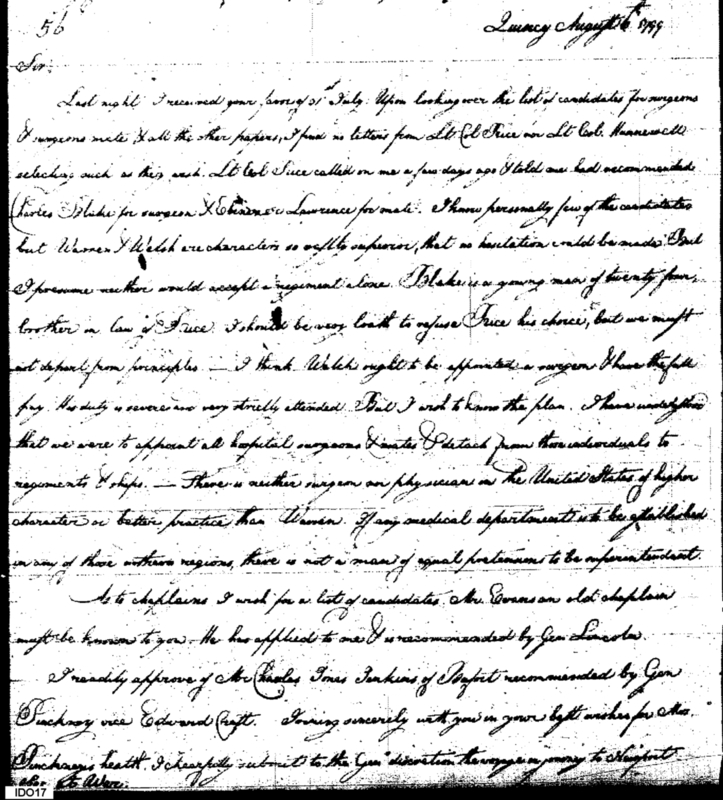 56
Quincy August 6th 1799
Sir.
Last night I received your favor of 31st July. Upon looking over the list of candidates for surgeons
& surgeons mate & all the other papers, I find no letters from Lt Col Rice nor Lt Col. Hunnewell
selecting such as they wish. Lt Col Rice called on me a few days ago & told me had recommended
Charles Blake for surgeon & Ebenezer Lawrence for mate. I know personally few of the candidates
but Warren & Welsh are characters so vastly superior, that no hesitation could be made. But
I presume neither would accept a regiment alone. Blake is a young man of twenty four,
brother in law of Rice. I should be very loath to refuse Rice his choice, but we must
not depart from principles — I think Welch ought to be appointed a surgeon & have the full
pay. His duty is severe and very strictly attended. But I wish to know the plan. I have understood
that we were to appoint all hospital surgeons & mates & detach from those individuals to
regiments & ships. — There is neither surgeon nor physician in the United States of higher
character or better practice than Warren. If any medical department is to be established
in any of those northern regions, there is not a man of equal pretensions to be superintendant.
As to chaplains I wish for a list of candidates. Mr. Evans an old chaplain
must be known to you. He has applied to me & is recommended by Gen Lincoln.
I readily approve of Mr Charles Jones Jenkins of Bufort recommended by Gen
Pinckney vice Edward Croft. Joining sincerely with you in your best wishes for Mrs.
Pinckneys health, I chearfully submit to the Gen discretion the voyage or journey to Newport
Sec. of War.
IDO17